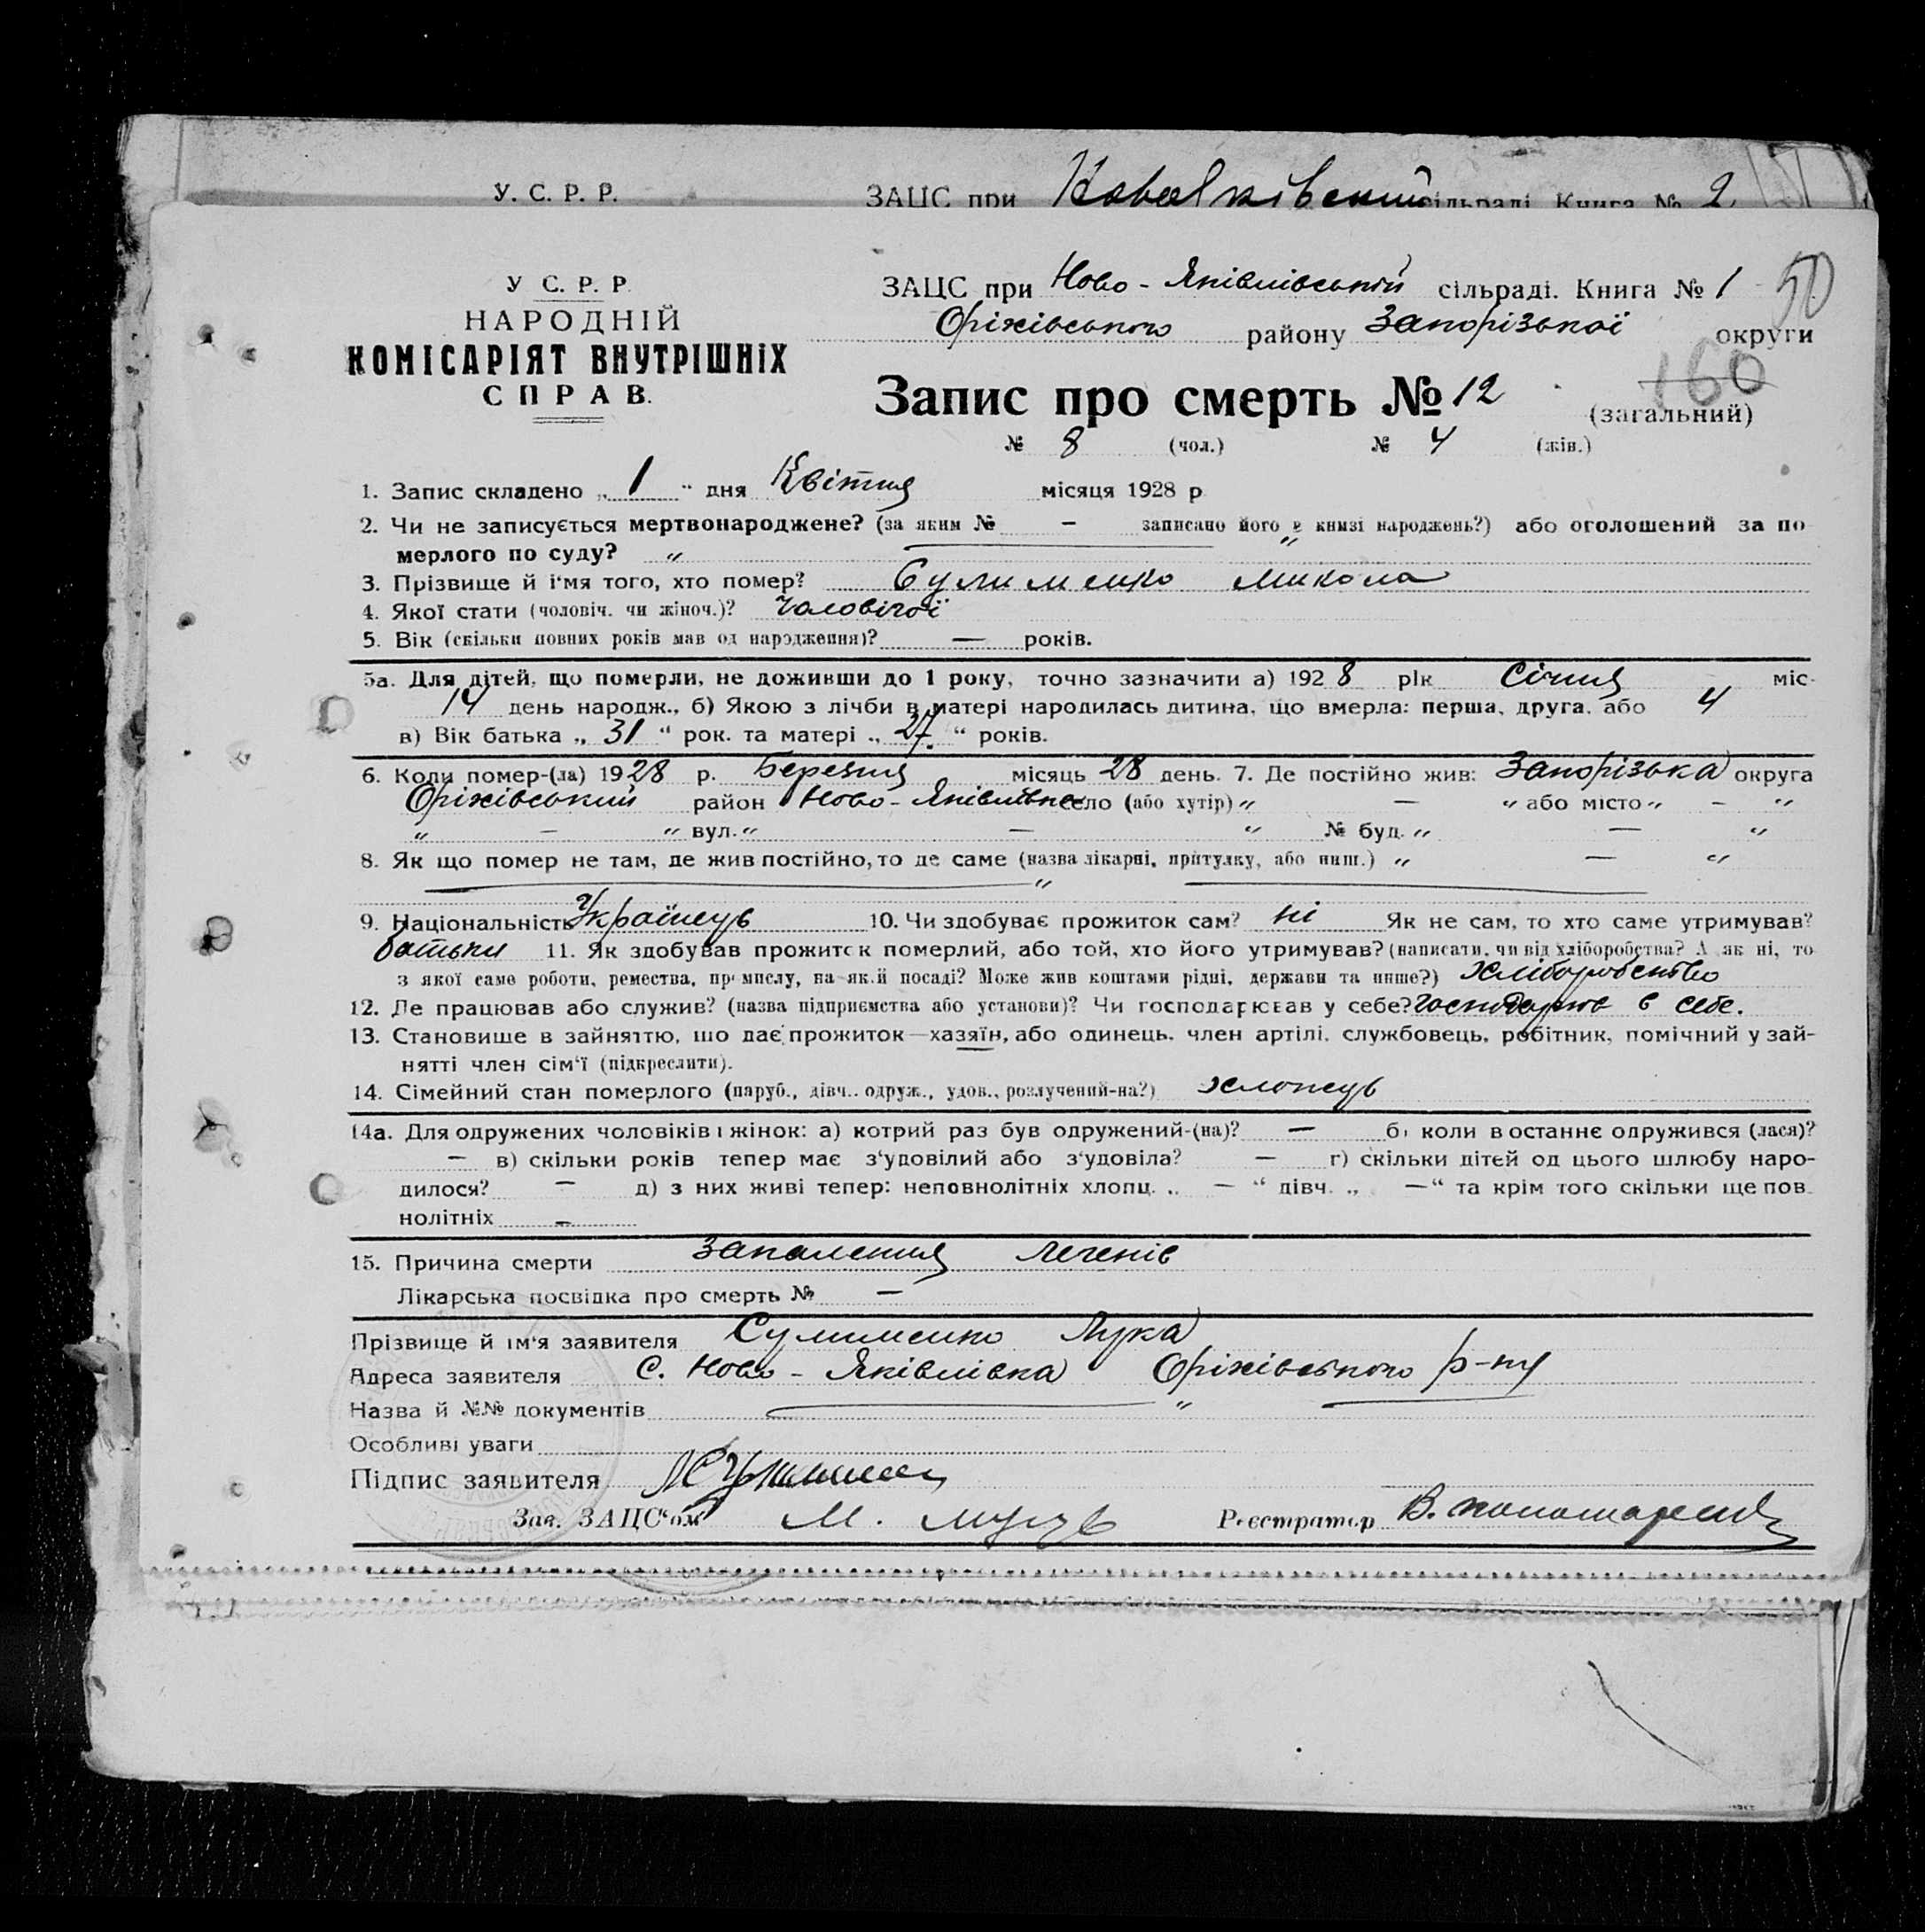 У. С. Р. Р. ЗАЦС при сільраді. Книга № 2
У С. Р. Р. ЗАЦС при Ново-Яківлівській сільраді. Книга № 1 50
НАРОДНІЙ Оріхівського району Запорізької округи
КОМІСАРІЯТ ВНУТРІШНІХ
СПРАВ.
160
Запис про смерть № 12 (загальний)
№ 8 (чол.) № 4 (жін.)
1. Запис складено „ 1 “ дня Квітня місяця 1928 р
2. Чи не записується мертвонароджене? (за яким № — записано його в книзі народжень?) або оголошений за по
мерлого по суду? „ — „
3. Прізвище й ім'я того, хто помер? Сулименко Микола
4. Якої статі (чоловіч. чи жіноч.)? Чоловічої
5. Вік (скільки повних років мав од народження)? — років.
5а. Для дітей, що померли, не доживши до 1 року, точно зазначити а) 1928 рік Січня міс-
14 день народж., б) Якою з лічби в матері народилась дитина, що вмерла: перша, друга, або 4
в) Вік батька „ 31 “ рок. та матері „ 27. “ років.
6. Коли помер-(ла) 1928 р. Березня місяць 28 день. 7. Де постійно жив: Запорізька округа
Оріхівський район Ново-Яківлівка село (або хутір) „ — „ або місто „ — „
„ — „ вул. „ — „ № буд. „ — „
8. Як що помер не там, де жив постійно, то де саме (назва лікарні, притулку, або инш.) „ — „
„
9. Національність Українець 10. Чи здобуває прожиток сам? ні Як не сам, то хто саме утримував?
батьки 11. Як здобував прожиток померлий, або той, хто його утримував? (написати, чи від хліборобства? А як ні, то
з якої саме роботи, ремества, промислу, на як.й посаді? Може жив коштами рідні, держави та инше?) Хліборобство
12. Де працював або служив? (назва підприємства або установи)? Чи господарював у себе? Господарює в себе.
13. Становище в зайняттю, що дає прожиток—хазяїн, або одинець, член артілі, службовець, робітник, помічний у зай-
нятті член сім'ї (підкреслити).
14. Сімейний стан померлого (паруб., дівч., одруж., удов., розлучений-на?) хлопець
14а. Для одружених чоловіків і жінок: а) котрий раз був одружений-(на)? — б) коли в останнє одружився (лася)?
— в) скільки років тепер має з'удовілий або з'удовіла? — г) скільки дітей од цього шлюбу наро-
дилося? — д) з них живі тепер: неповнолітніх хлопц. „ — “ дівч. „ — “ та крім того скільки ще пов.
нолітніх —
15. Причина смерти запалення легенів
Лікарська посвідка про смерть № —
Прізвище й ім'я заявителя Сулименко Лука
Адреса заявителя с. Ново-Яківлівка Оріхівського р-ну
Назва й №№ документів — „ —
Особливі уваги
Підпис заявителя
Зав. ЗАЦС'ом М. Реєстратор В.